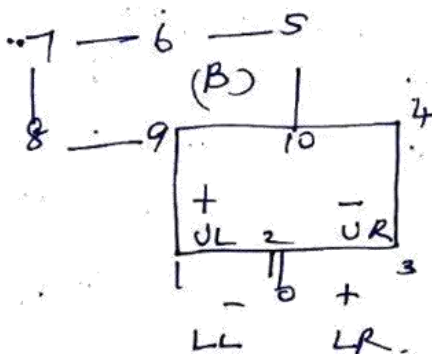 7 6 5
(B)
8 9 10 4
+ −
UL 2 UR
1 0 3
− +
LL LR.